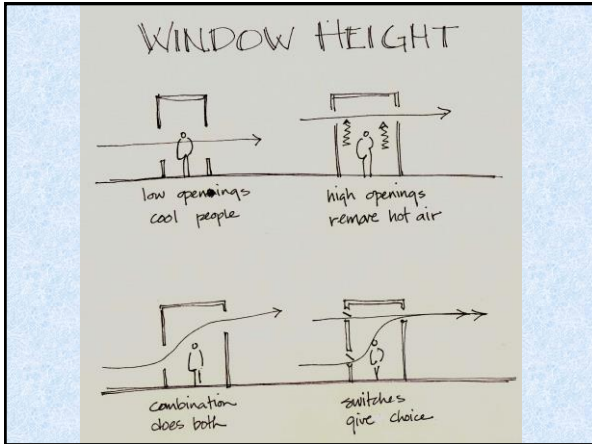 WINDOW HEIGHT
low openings
cool people
high openings
remove hot air
combination
does both
switches
give choice